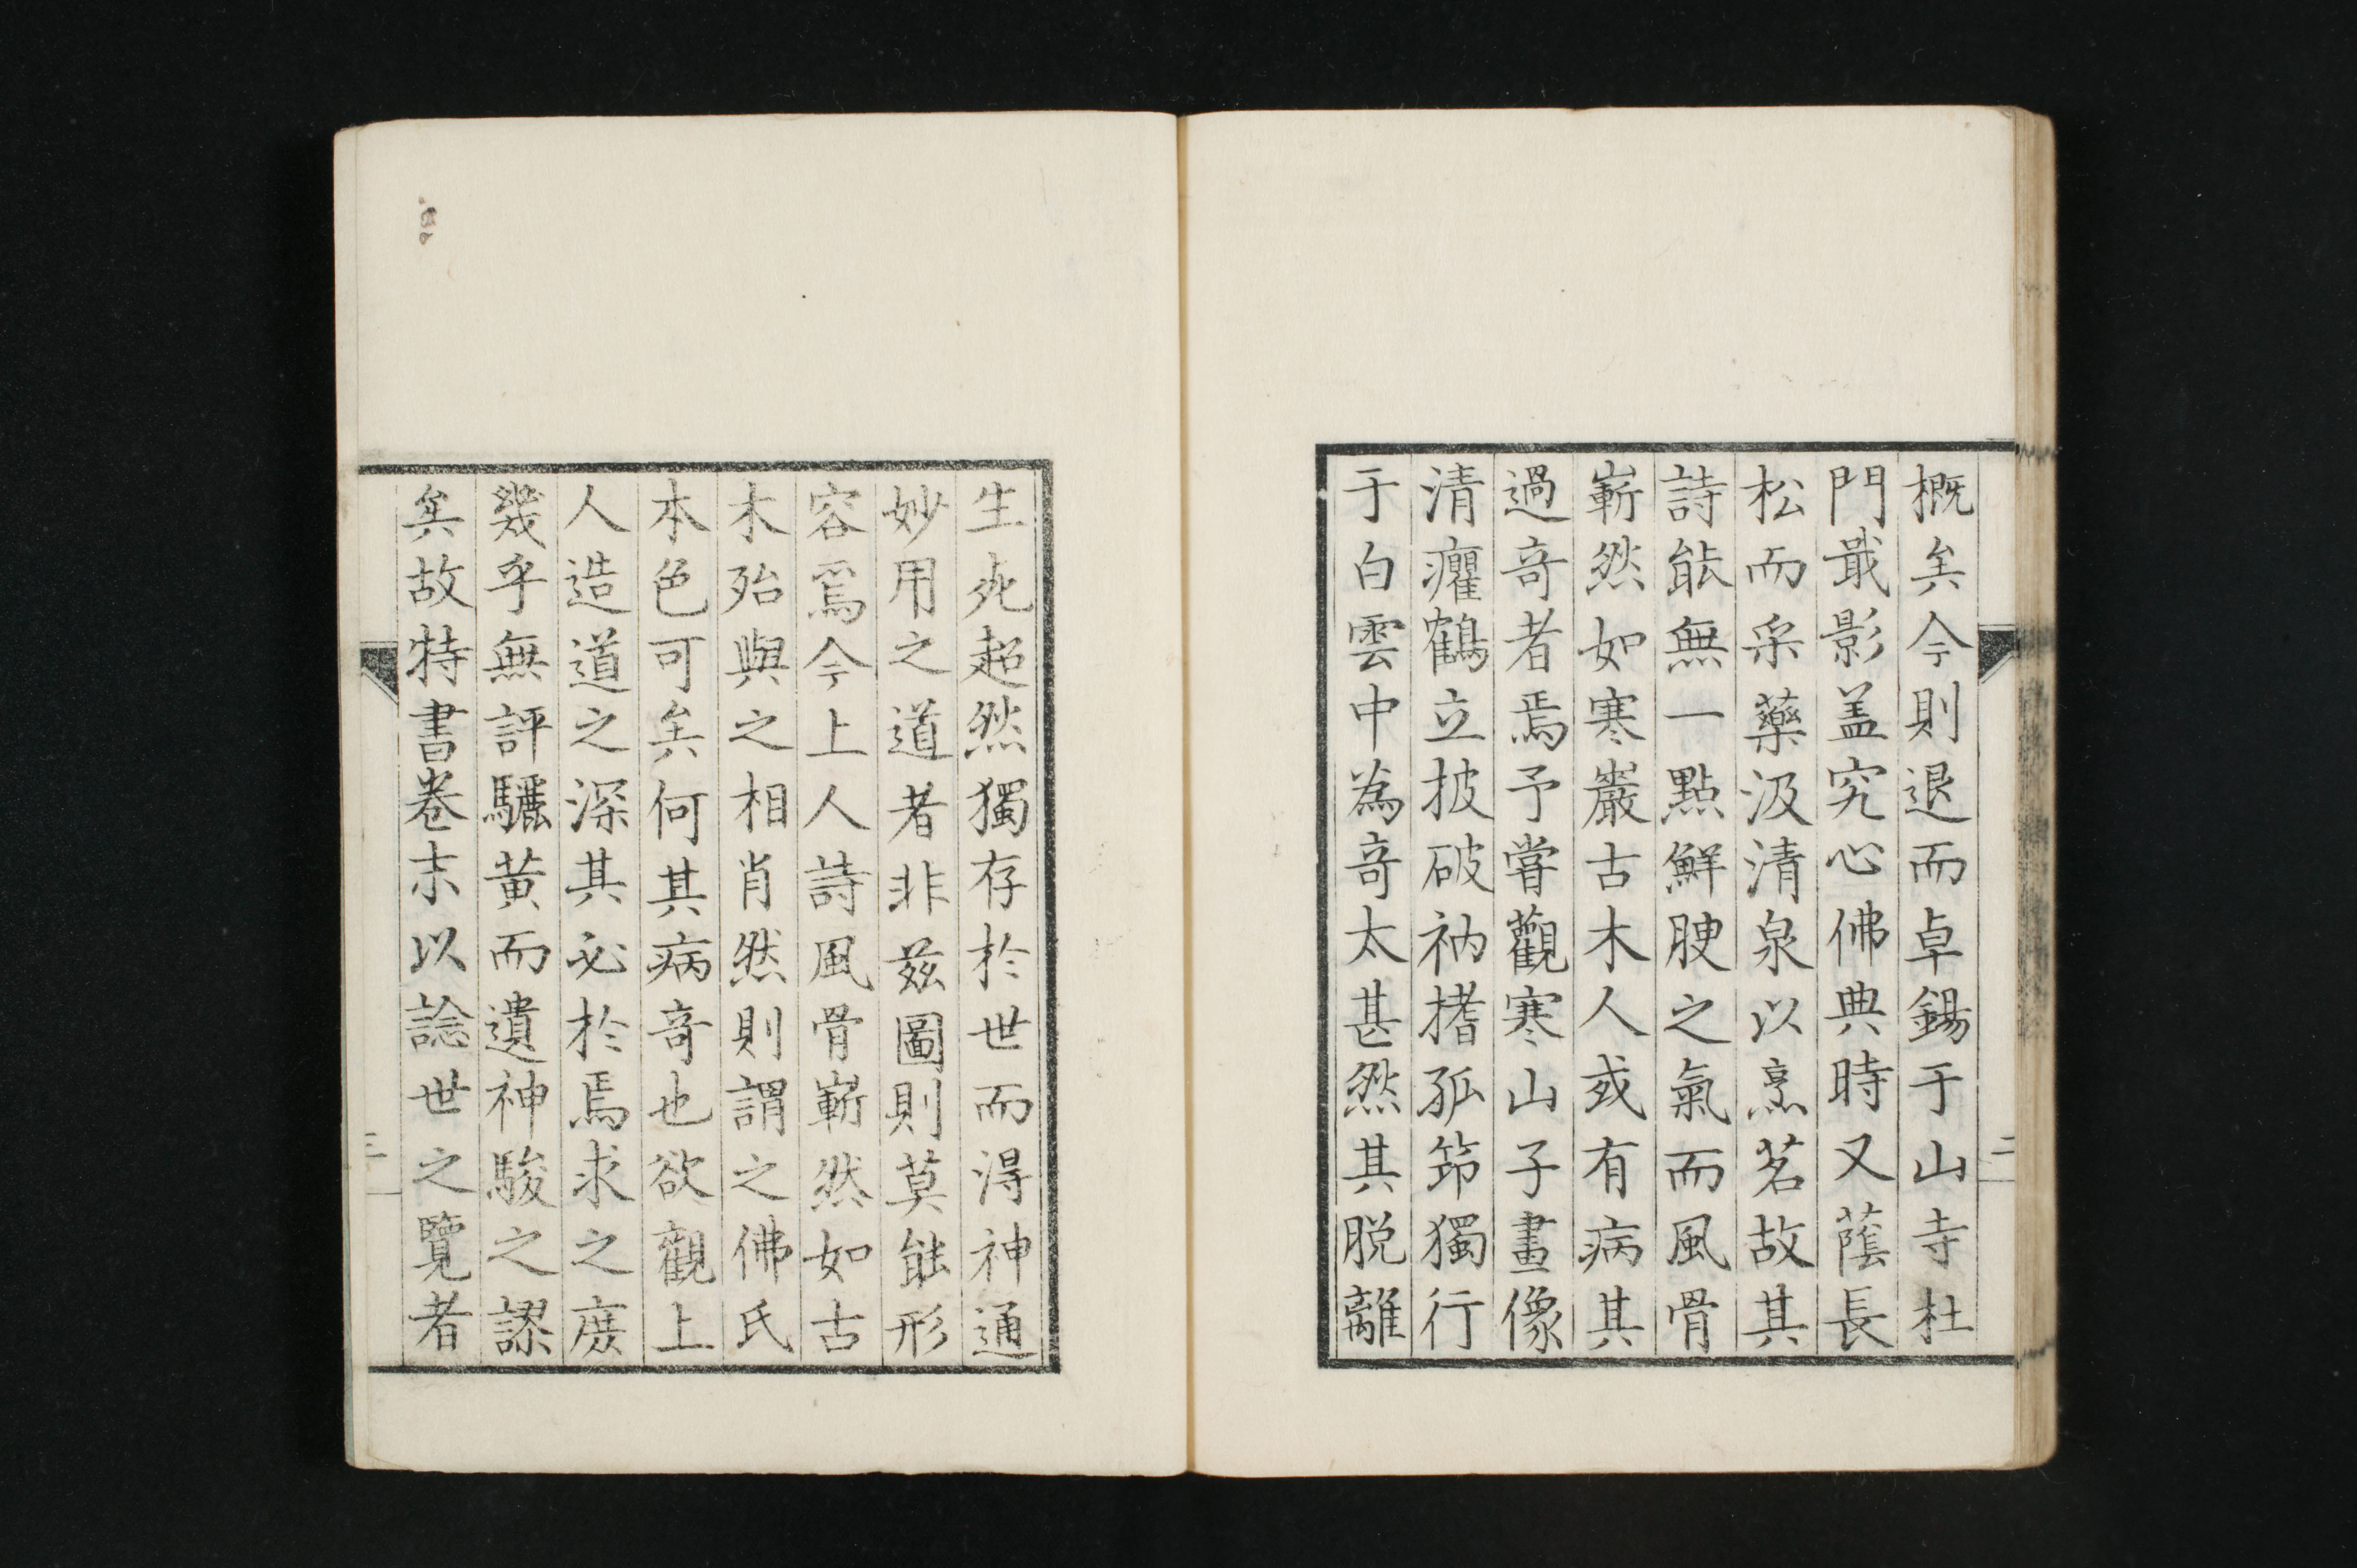 概矣今則退而卓錫于山寺杜
門戢影盖究心佛典時又蔭長
松而采藥汲清泉以烹茗故其
詩能無一點鮮腴之氣而風骨
嶄然如寒巖古木人或有病其
過竒者焉予嘗觀寒山子畫像
清癯鶴立披破衲揩孤筇獨行
于白雲中為竒太甚然其脱離
二
生死超然獨存於世而得神通
妙用之道者非兹圖則莫能形
容焉今上人詩風骨嶄然如古
木殆與之相肖然則謂之佛氏
本色可矣何其病竒也欲觀上
人造道之深其必於焉求之庻
幾乎無評驪黄而遺神駿之謬
矣故特書卷末以諗世之覽者
三